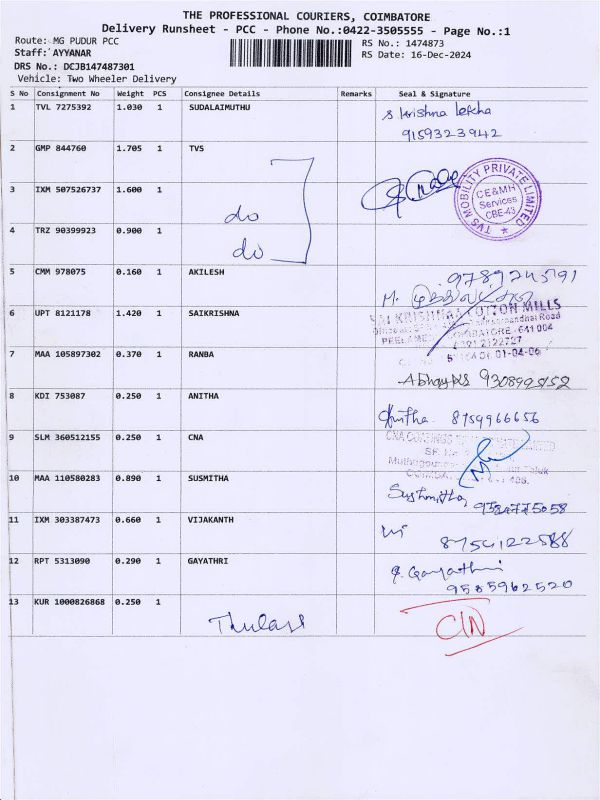 THE PROFESSIONAL COURIERS, COIMBATORE
Delivery Runsheet - PCC - Phone No.:0422-3505555 - Page No.:1
Route: MG PUDUR PCC
RS No.: 1474873
Staff: AYYANAR
RS Date: 16-Dec-2024
DRS No.: DCJB147487301
Vehicle: Two Wheeler Delivery
S No Consignment No Weight PCS Consignee Details Remarks Seal & Signature
1 TVL 7275392 1.030 1 SUDALAIMUTHU
S Krishna lekha
9159323942
2 GMP 844760 1.705 1 TVS
3 IXM 507526737 1.600 1
do
TVS MOBILITY PRIVATE LIMITED
CE&MH
Services
CBE-43
4 TRZ 90399923 0.900 1
do
5 CMM 978075 0.160 1 AKILESH
6 UPT 8121178 1.420 1 SAIKRISHNA
SAI KRISHNA COTTON MILLS
7 MAA 105897302 0.370 1 RANBA
8 KDI 753087 0.250 1 ANITHA
Anitha 8759966656
9 SLM 360512155 0.250 1 CNA
10 MAA 110580283 0.890 1 SUSMITHA
Sushmitha
11 IXM 303387473 0.660 1 VIJAKANTH
8754122588
12 RPT 5313090 0.290 1 GAYATHRI
S. Gayathri
9585962520
13 KUR 1000826868 0.250 1
Thulasi